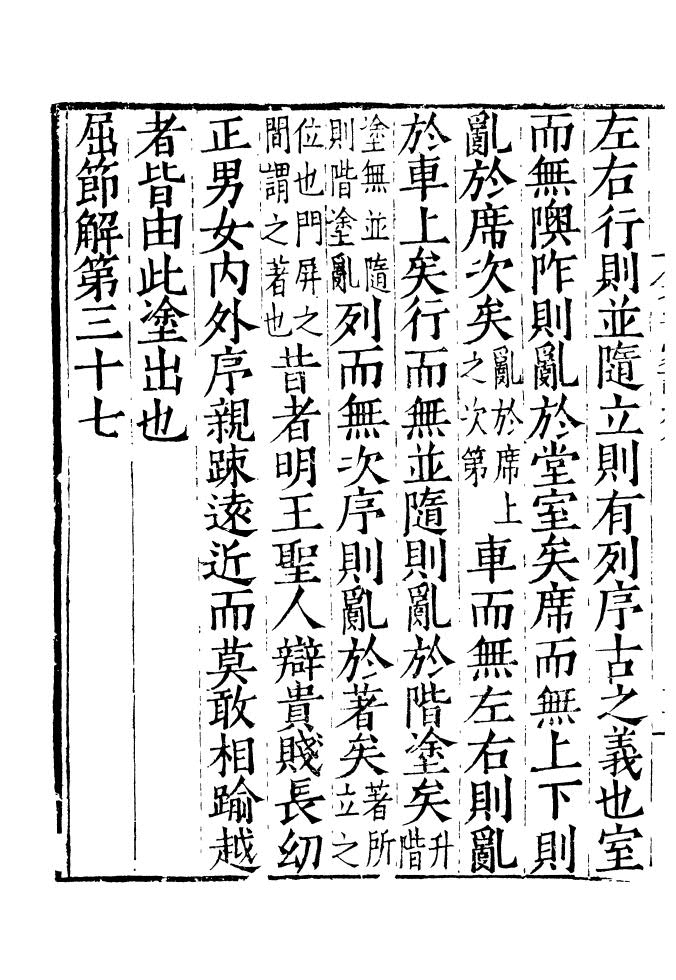 左右行則並隨立則有列序古之義也室
而無隩阼則亂於堂室矣席而無上下則
亂於席次矣亂於席上之次第車而無左右則亂
於車上矣行而無並隨則亂於階塗矣升階
塗無並隨則階塗亂列而無次序則亂於著矣著所立之
位也門屏之間謂之著也昔者明王聖人辯貴賤長幼
正男女內外序親踈遠近而莫敢相踰越
者皆由此塗出也
屈節解第三十七